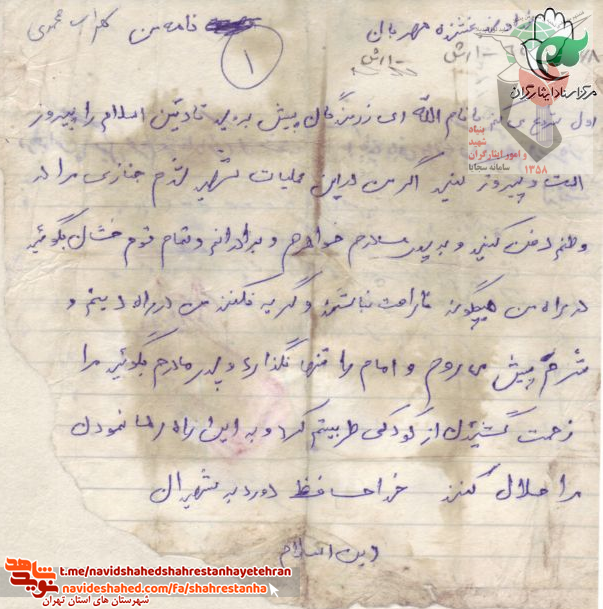 بخشنده مهربان
نامه من
گلزار محمدی
۱
مرکز اسناد ایثارگران
بنیاد
شهید
و امور ایثارگران
سامانه سجایا
۱۳۵۸
اول با نام الله ای رزمندگان پیش بروید تا دین اسلام را پیروز
است و پیروز کنید اگر من در این عملیات شهید شدم جنازی مرا در
وطنم دفن کنید و به پدر مادرم خواهرم و برادرانم و تمام قوم بگوئید
در راه من هیچگونه ناراحت نباشند و گریه نکنند من در راه دینم و
پیش می روم و امام را تنها نگذارید و پدر مادرم بگوئید مرا
زحمت کشیدن از کودکی طربیتم کرد و به این راه رها نمودن
مرا حلال کنند خداحافظ درود بر شهیدان
دین اسلام
شاهد
نوید
t.me/navidshahedshahrestanhayetehran
navideshahed.com/fa/shahrestanha
شهرستان های استان تهران